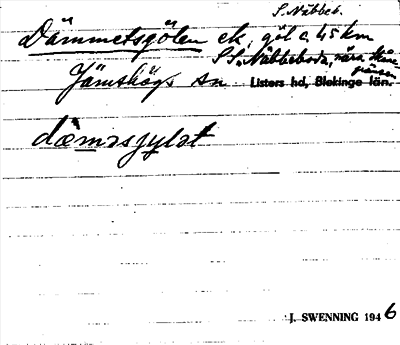 S. Näbbeb.
Dämmetsgölen ek, göl c. 1,5 km
S S. Näbbeboda, nära Skåne-
gränsen
Jämshögs sn Listers hd, Blekinge län.
dämsjylət
J. SWENNING 1946